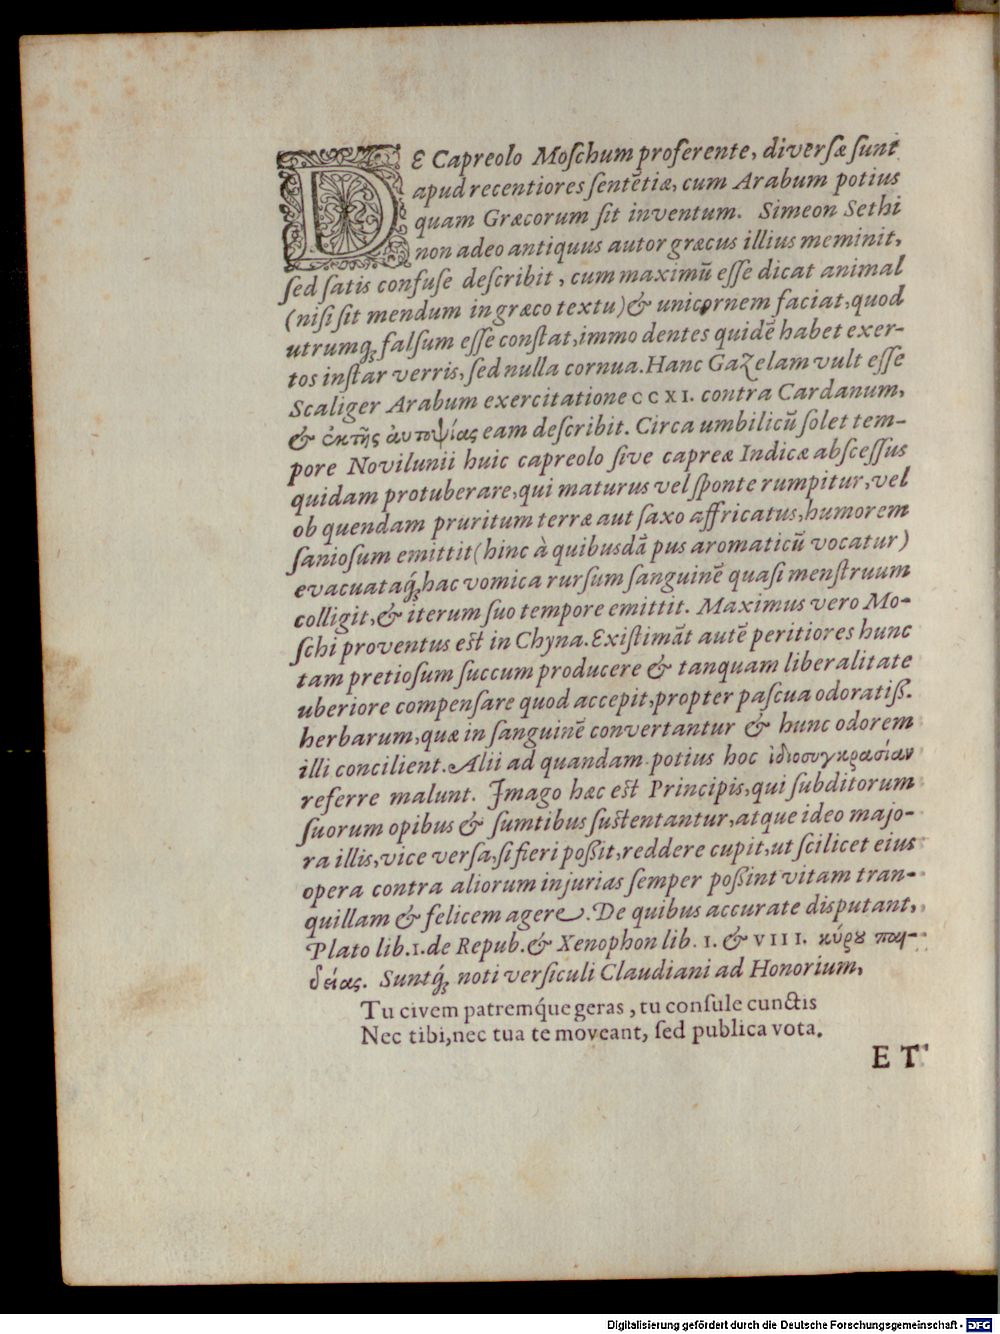 DE Capreolo Moſchum proferente, diverſæ ſunt
apud recentiores ſentẽtiæ, cum Arabum potius
quam Græcorum ſit inventum. Simeon Sethi
non adeo antiquus autor græcus illius meminit,
ſed ſatis confuſe deſcribit, cum maximũ eſſe dicat animal
(niſi ſit mendum in græco textu) & unicornem faciat, quod
utrumq́; falſum eſſe conſtat, immo dentes quidẽ habet exer-
tos inſtar verris, ſed nulla cornua. Hanc Gazelam vult eſſe
Scaliger Arabum exercitatione CCXI. contra Cardanum,
& ἐκτῆς ἀυτοψίας eam deſcribit. Circa umbilicũ ſolet tem-
pore Novilunii huic capreolo ſive capreæ Indicæ abſceſſus
quidam protuberare, qui maturus vel ſponte rumpitur, vel
ob quendam pruritum terræ aut ſaxo affricatus, humorem
ſanioſum emittit (hinc à quibusdã pus aromaticũ vocatur)
evacuataq́; hac vomica rurſum ſanguinẽ quaſi menſtruum
colligit, & iterum ſuo tempore emittit. Maximus vero Mo-
ſchi proventus est in Chyna. Exiſtimãt autẽ peritiores hunc
tam pretioſum ſuccum producere & tanquam liberalitate
uberiore compenſare quod accepit, propter paſcua odoratiß.
herbarum, quæ in ſanguinẽ convertantur & hunc odorem
illi concilient. Alii ad quandam potius hoc ἰδιοσυγκρασίαν
referre malunt. Imago hæc est Principis, qui ſubditorum
ſuorum opibus & ſumtibus ſustentantur, atque ideo majo-
ra illis, vice verſa, ſi fieri poßit, reddere cupit, ut ſcilicet eius
opera contra aliorum injurias ſemper poßint vitam tran-
quillam & felicem agere. De quibus accurate disputant,
Plato lib. 1. de Repub. & Xenophon lib. I. & VIII. κύρȣ παι-
δείας. Suntq́; noti verſiculi Claudiani ad Honorium,
Tu civem patremq́ue geras, tu conſule cunctis
Nec tibi, nec tua te moveant, ſed publica vota.
ET
Digitalisierung gefördert durch die Deutsche Forschungsgemeinschaft - DFG